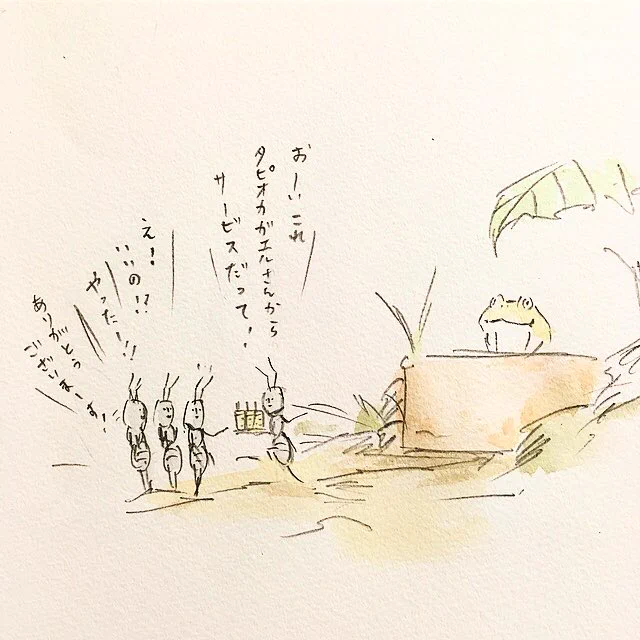 おーいこれ
タピオカガエルさんから
サービスだって!
え!
いいの!?
やったー!!
ありがとう
ございまーす!